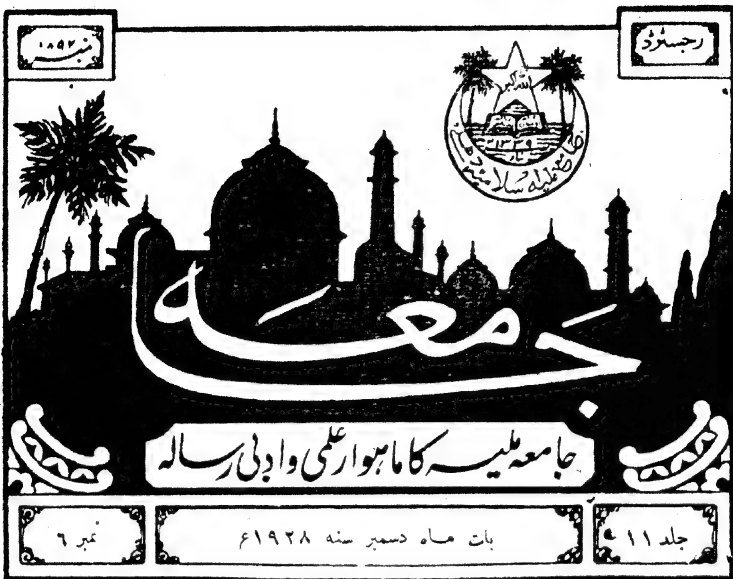 رجسٹرڈ
نمبر ۱۸۹۲
اللہ اکبر
۱۳۳۹
جامعہ ملیہ اسلامیہ دهلی
جامعہ
جامعہ ملیہ کا ماہوار علمی و ادبی رسالہ
جلد ۱۱
بات ماہ دسمبر سنہ ۱۹۲۸ع
نمبر ۶